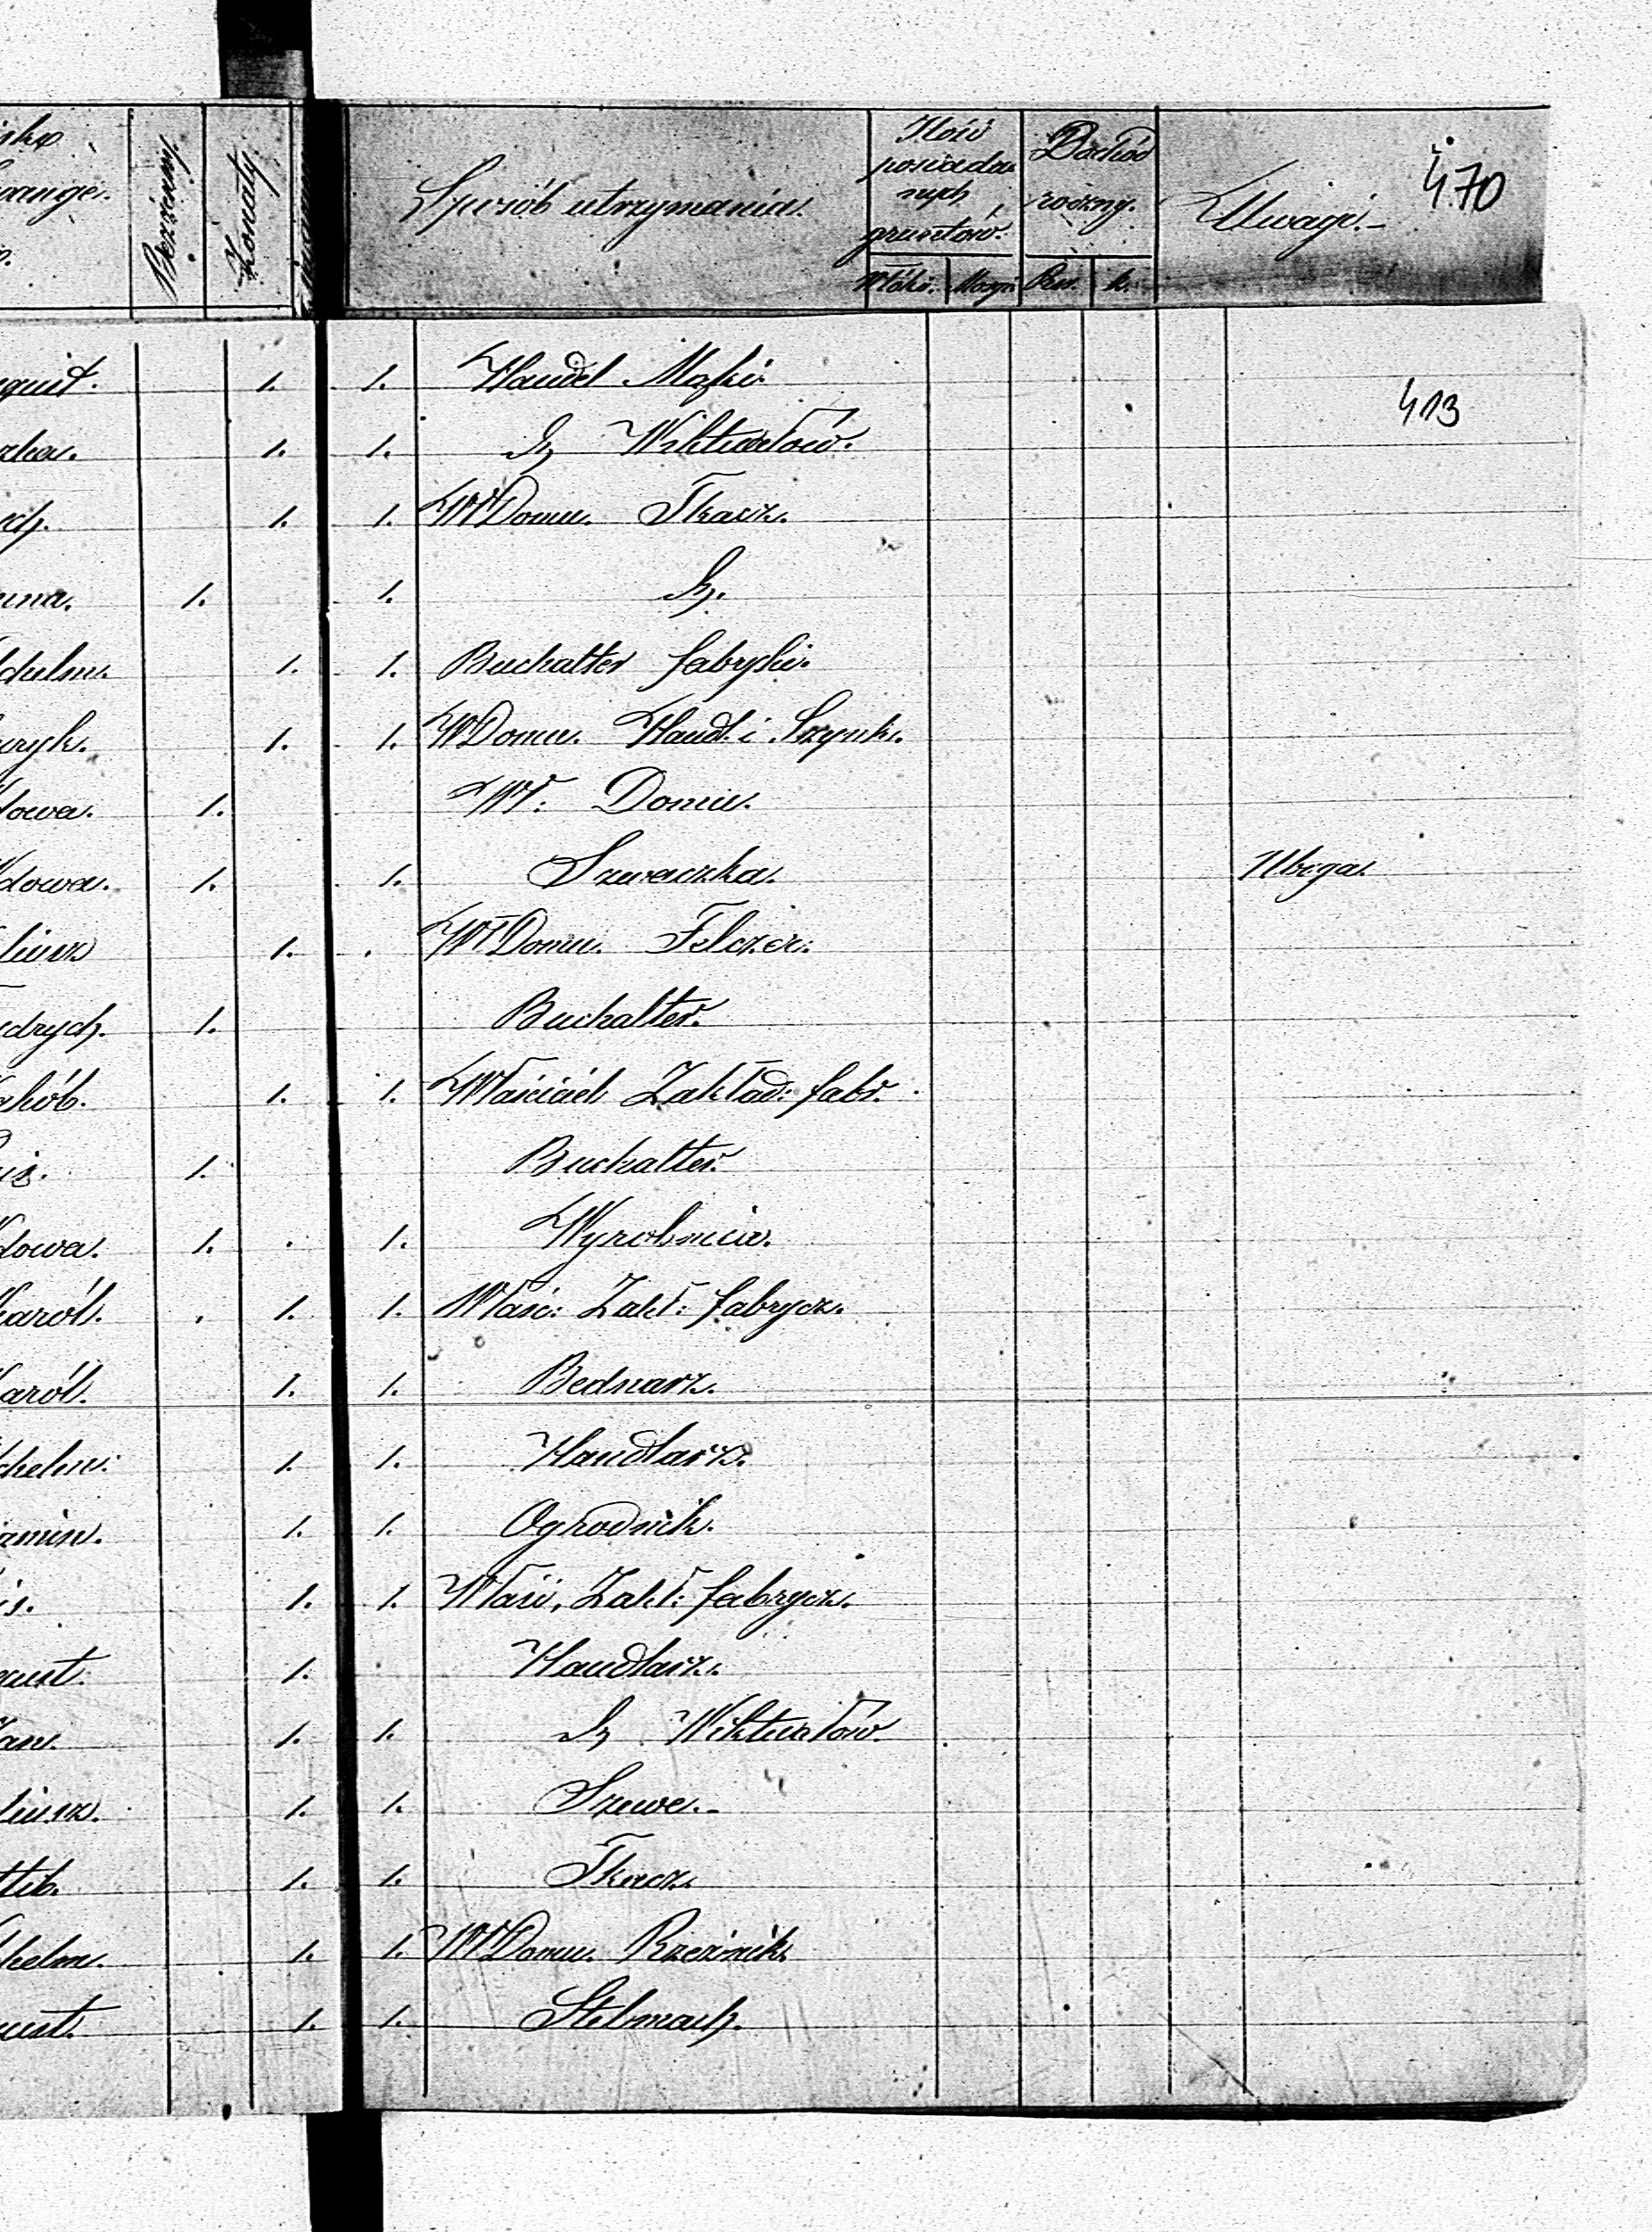 470
Bezżenny. Żonaty Sposób utrzymania. Ilość posiadanych gruntów. Dochód roczny. Uwagi.-
Włók. Morg. Rsr. k.
413
1. 1. Handel Mąki.
zka. 1. 1. Wiktuałów.
1. 1. Wł Domu. Tkacz.
nna. 1. 1.
lchelm. 1. 1. Buchalter fabryki.
ryk. 1. 1. Wł Domu. Handl. i Szynk.
dowa. 1. Wł: Domu.
Wdowa. 1. 1. Szwaczka. Uboga.
liusz 1. Wł Domu. Felczer.
drych. 1. Buchalter.
akób. 1. 1. Właściciel Zakład: fabr.
is. 1. Buchalter.
dowa. 1. 1. Wyrobnica.
Karól. 1. 1. Właśc: Zakł: fabrycz.
Karól. 1. 1. Bednarz.
chelm: 1. 1. Handlarz.
iamin. 1. 1. Ogrodnik.
is. 1. 1. Właśc, Zakł: fabrycz.
gust. 1. Handlarz.
Jan. 1. 1. Wiktuałów.
liusz. 1. 1. Szewc.-
ttlib. 1. 1. Tkacz.
lhelm. 1. 1. Wł Domu. Rzeźnik.
ust. 1. 1. Stelmach.